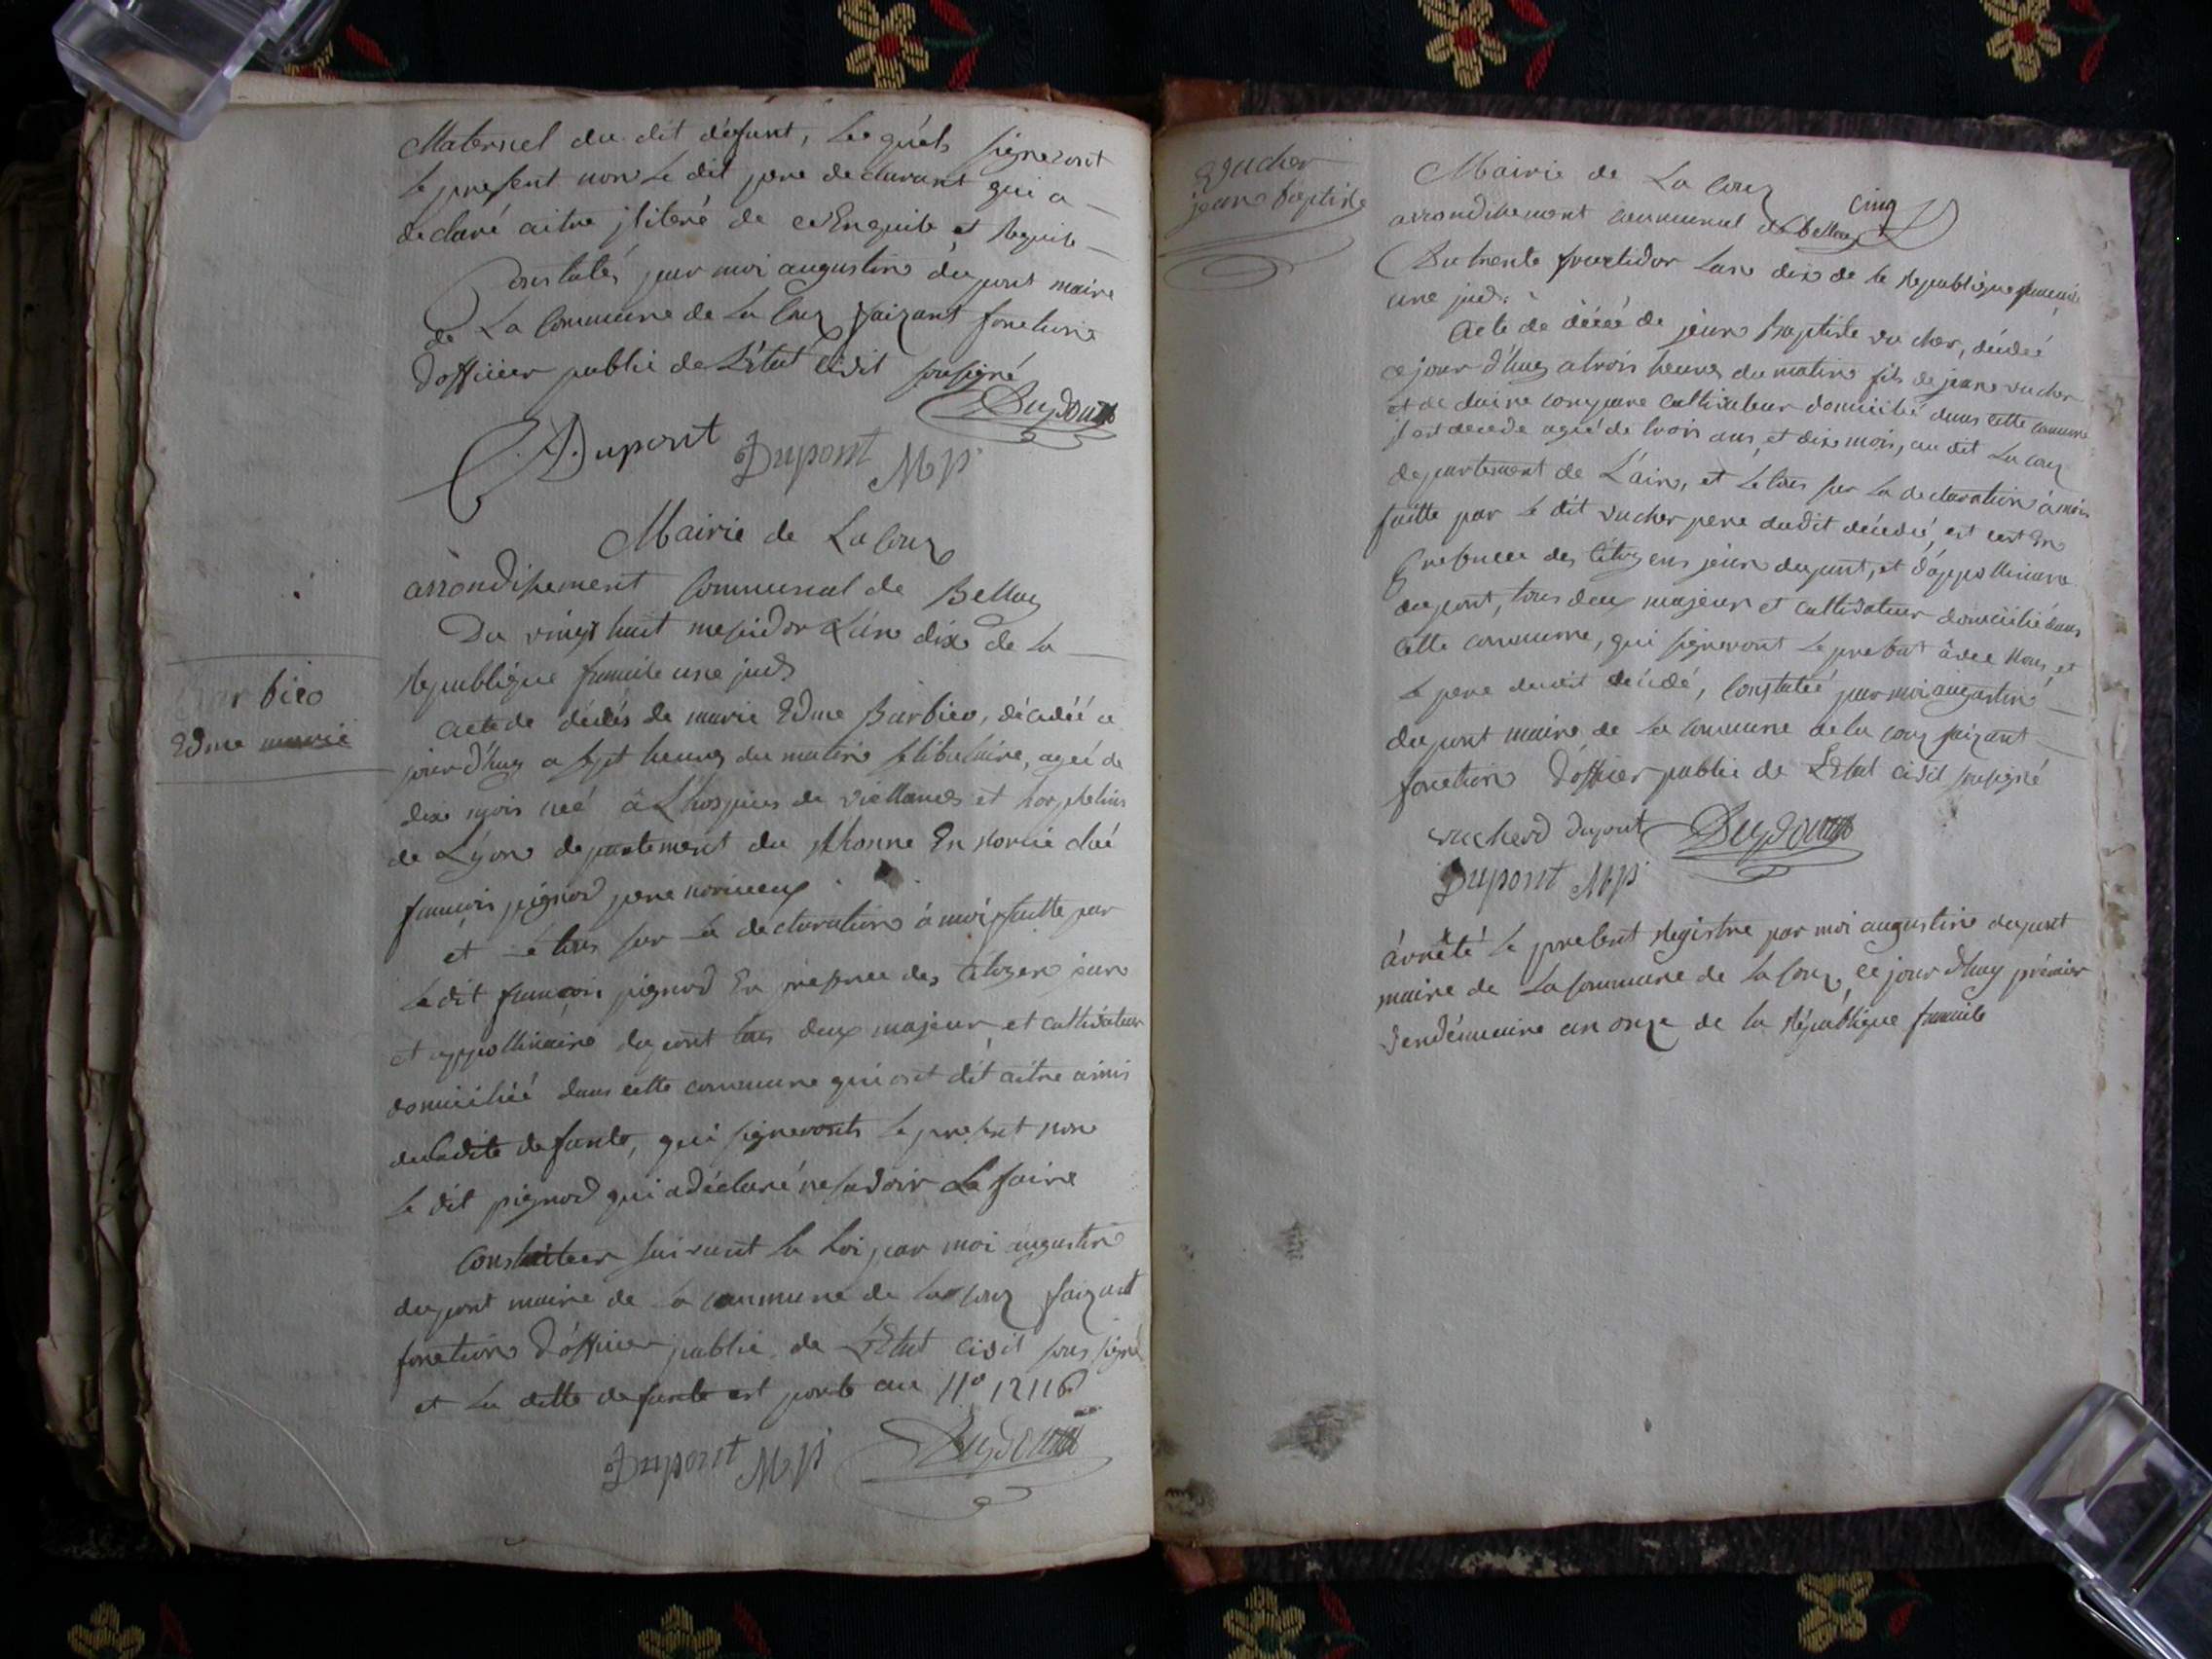 Maternel du dit défunt, les quels signeront
le present non le dit pere declarant qui a
declaré aitre de ce Enquite et Requite
Constatés par moi augustin dupont maire
de La Commune de La Couz faizant fonction
D'officier public de L'état Civil sousigné
Dupont
Dupont Dupont M p
Mairie de La Couz
arrondissement Communal de Belley
Du vingt huit mesidor L'an dix de La
Republique
Barbien
Edme marie
acte de décès de marie Edme Barbien, décédée ce
jour d'huy a sept heures du matin selibataire, agée de
dix mois neé à L'hospices de viellards et horphelins
de Lyon departement du Rhonne En norrie ché
francois pignod pere noricieux
et sur La declaration à moi faitte par
Le dit françois pignod En presence des Citoyen jean
et appollinaire dupont tous deux majeur et cultivateur
domicilié dans cette commune qui ont dit aitre amis
de Ladite defunte, qui signeronts Le present non
Le dit pignod qui a déclaré ne savoir Le faire
Constater suivant La Loi par moi augustin
dupont maire de La commune de La Couz faizant
fonction D'officier public de L'Etat Civil sous signé
et La ditte defunte est porté au N° 12116
Dupont M p Dupont
Vucher
jean baptiste
Mairie de La Couz
cinq
arrondissement communal de Belley
Du trente fructidor Lan dix de la Republique
Acte de décès de jean Baptiste vucher, décédé
ce jour d'huy a trois heures du matin fils de jean vucher
et de claire cultivateur domicilié dans cette comune
il est decede agé de trois ans, et dix mois, au dit La Couz
departement de L'ain, et sur La declaration à moi
faitte par Le dit vucher pere dudit décédé, et cest En
presence des Citoyens jean dupont, et d'appollinaire
dupont, tous deux majeur et cultivateur domicilié dans
cette commune, qui signeront Le present avec Nous, et
Le pere dudit décédé, Constaté par moi augustin
dupont maire de La commune de La Couz faizant
fonction D'officier public de L'Etat Civil sousigné
vucherd dupont Dupont
Dupont M p
arrêté Le present Registre par moi augustin dupont
maire de La Commune de La Couz, ce jour d'huy prémier
Vendémiaire an onze de La République